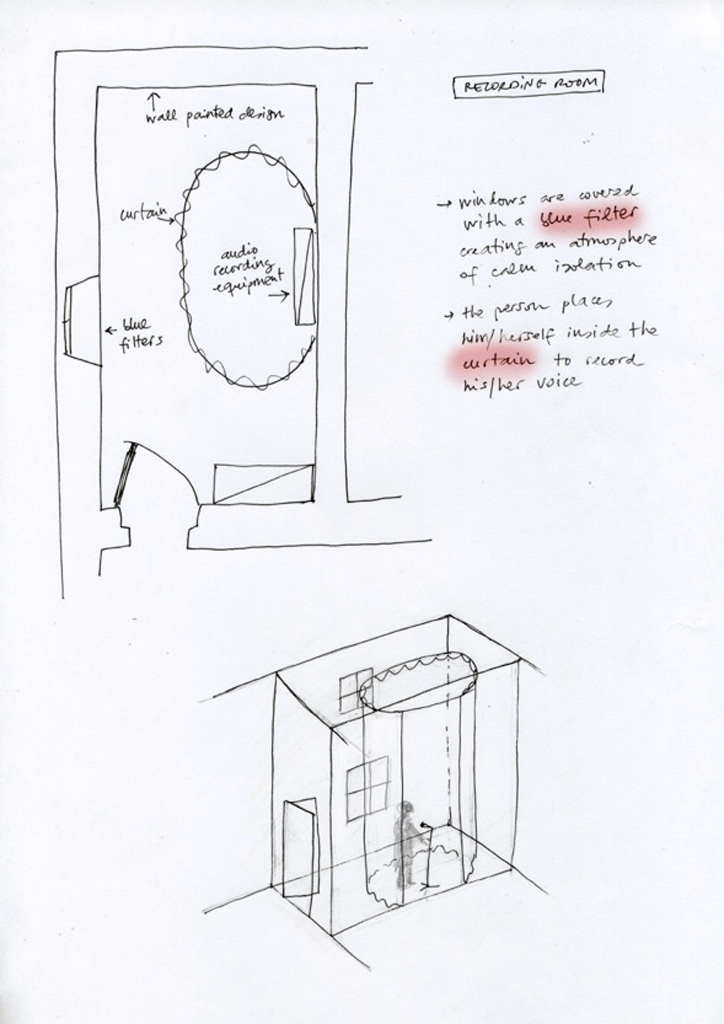 RECORDING ROOM
wall painted design
curtain
audio
recording
equipment
blue
filters
→ windows are covered
with a blue filter
creating an atmosphere
of calm isolation
→ the person places
him/herself inside the
curtain to record
his/her voice